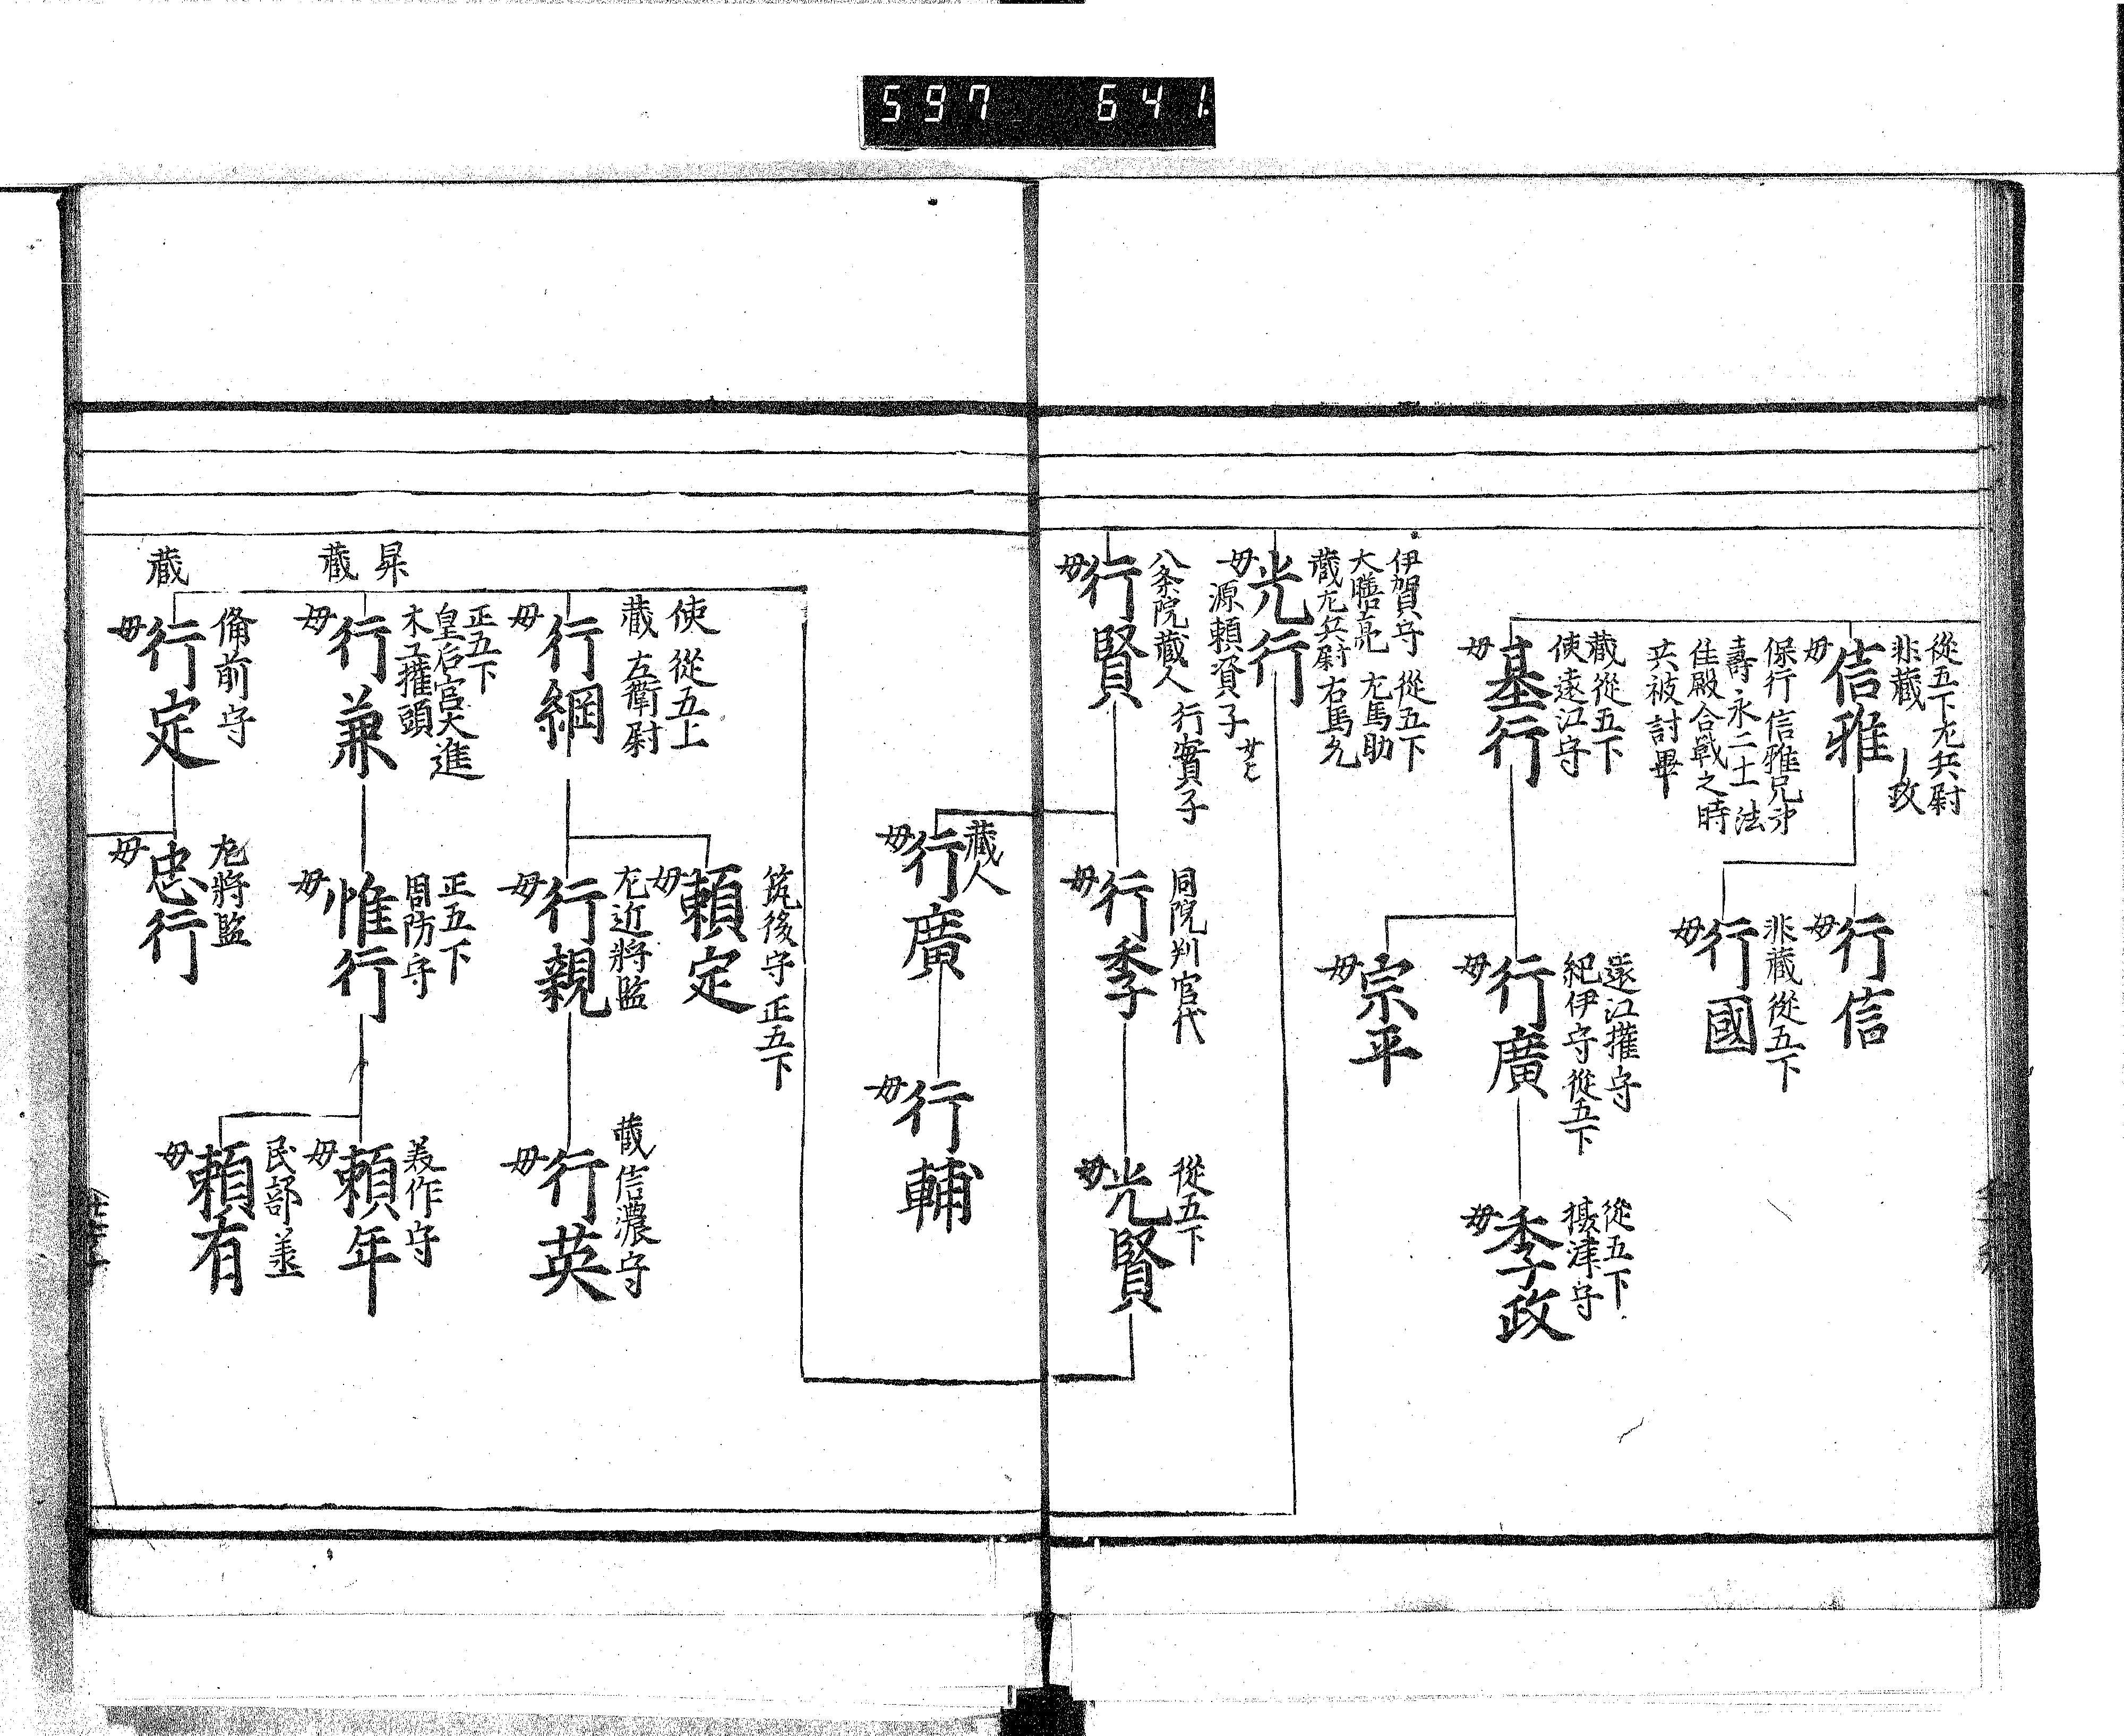 597 641
從五下左兵尉
非藏
政
信雅
母
保行 信雅兄弟
壽永二十一法
住殿合戰之時
共被討畢
行信
母
非藏從五下
行國
母
藏從五下
使遠江守
基行
母
遠江權守
紀伊守從五下
行廣
母
從五下
攝津守
季政
母
宗平
母
伊賀守 從五下
大膳亮 左馬助
藏左兵尉右馬允
光行
母源頼資子
八条院藏人 行實子
行賢
母
同院判官代
行季
母
從五下
光賢
母
藏人
行廣
母
行輔
母
使從五上
藏 左衛尉
行綱
母
筑後守 正五下
頼定
母
左近將監
行親
母
藏信濃守
行英
母
昇
藏
正五下
皇后宮大進
木工權頭
行兼
母
正五下
周防守
惟行
母
美作守
頼年
母
民部丞
頼有
母
藏
備前守
行定
母
左將監
忠行
母